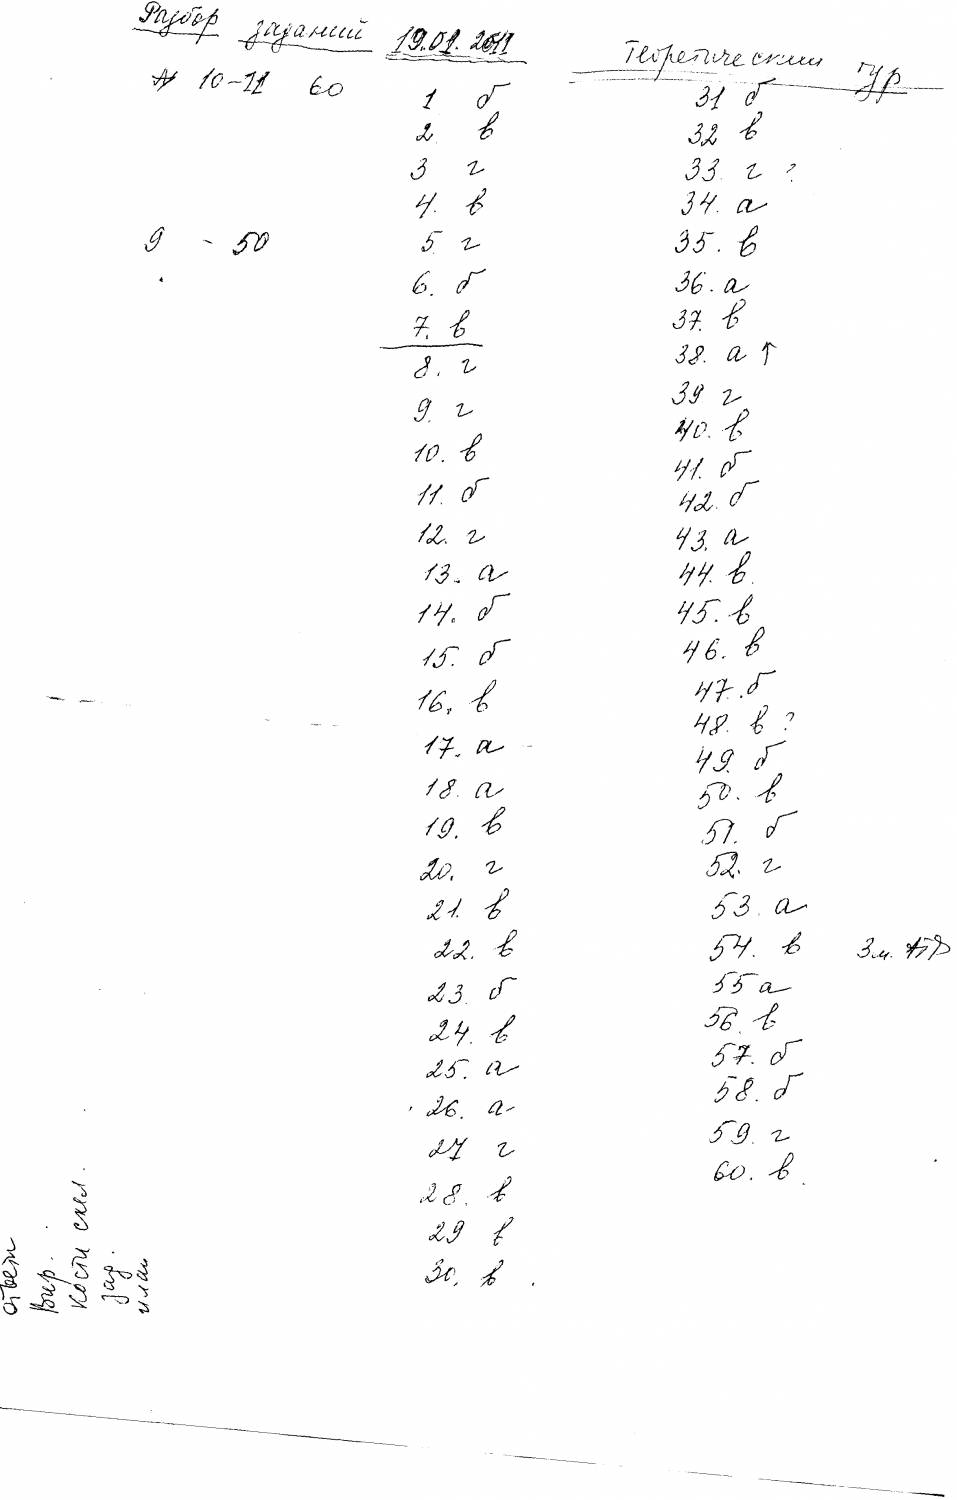 Разбор заданий 19.01.2011
Теоретический тур
10-11 60
9 - 50
1 б
2 в
3 г
4. в
5 г
6. б
7. в
8. г
9. г
10. в
11. б
12. г
13. а
14. б
15. б
16. в
17. а
18. а
19. в
20. г
21. в
22. в
23. б
24. в
25. а
26. а
27 г
28. в
29 в
30. в
31 б
32 в
33. г ?
34. а
35. в
36. а
37. в
38. а ↑
39 г
40. в
41. б
42. б
43. а
44. в
45. в
46. в
47. б
48. в ?
49. б
50. в
51. б
52. г
53. а
54. в
55 а
56. в
57. б
58. б
59. г
60. в
кости